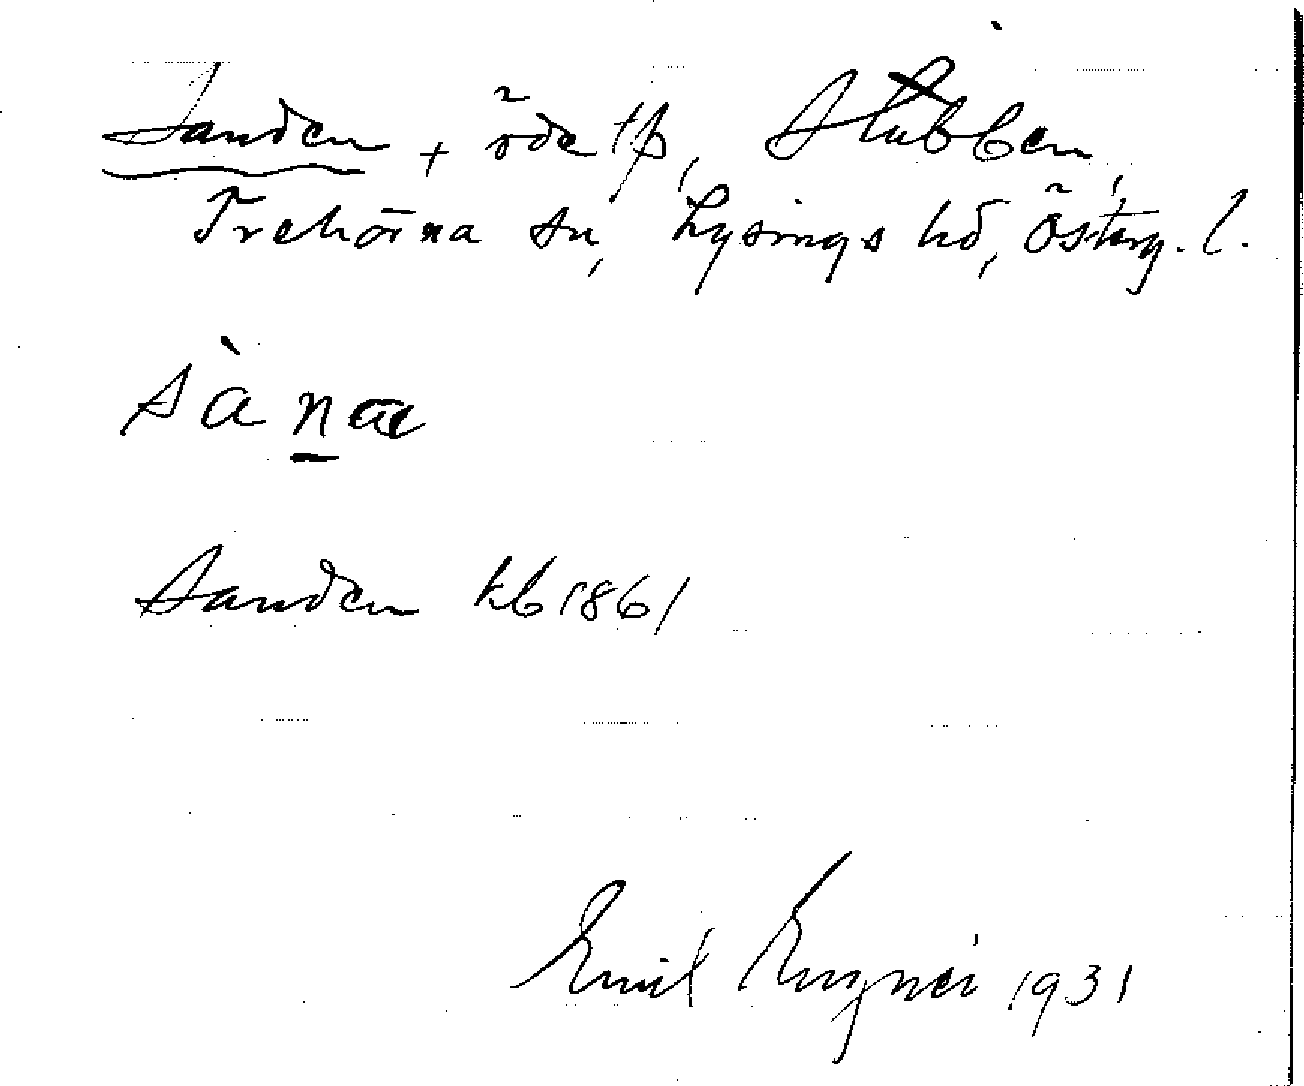 Sanden + öde tp, Stubben,
Trehörna sn, Lysings hd, Österg. l.
sànæ
Sanden kb 1861
Emil 1931